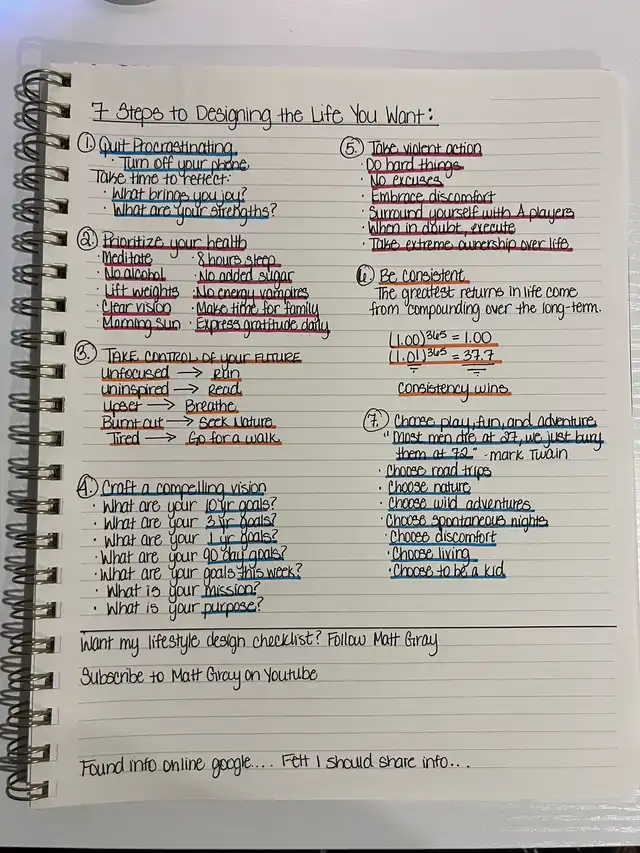 7 Steps to Designing the Life You Want:
1. Quit Procrastinating
· Turn off your phone
Take time to reflect:
· What brings you joy?
· What are your strengths?
2. Prioritize your health
· Meditate · 8 hours sleep
· No alcohol · No added sugar
· Lift weights · No energy vampires
· Clear vision · Make time for family
· Morning sun · Express gratitude daily
3. TAKE CONTROL OF your FUTURE
unfocused → Run
uninspired → Read
upset → Breathe
Burnt out → Seek Nature
Tired → Go for a walk
4. Craft a compelling vision
· What are your 10 yr goals?
· What are your 3 yr goals?
· What are your 1 yr goals?
· What are your 90 day goals?
· What are your goals this week?
· What is your mission?
· What is your purpose?
5. Take violent action
· Do hard things
· No excuses
· Embrace discomfort
· Surround yourself with A players
· When in doubt, execute
· Take extreme ownership over life
6. Be consistent
The greatest returns in life come
from compounding over the long-term.
(1.00)^365 = 1.00
(1.01)^365 = 37.7
consistency wins
7. Choose play, fun, and adventure
"Most men die at 27, we just bury
them at 72" - mark Twain
· Choose road trips
· Choose nature
· Choose wild adventures
· Choose spontaneous nights
· Choose discomfort
· Choose living
· Choose to be a kid
Want my lifestyle design checklist? Follow Matt Gray
Subscribe to Matt Gray on Youtube
Found info online google.... Felt I should share info...